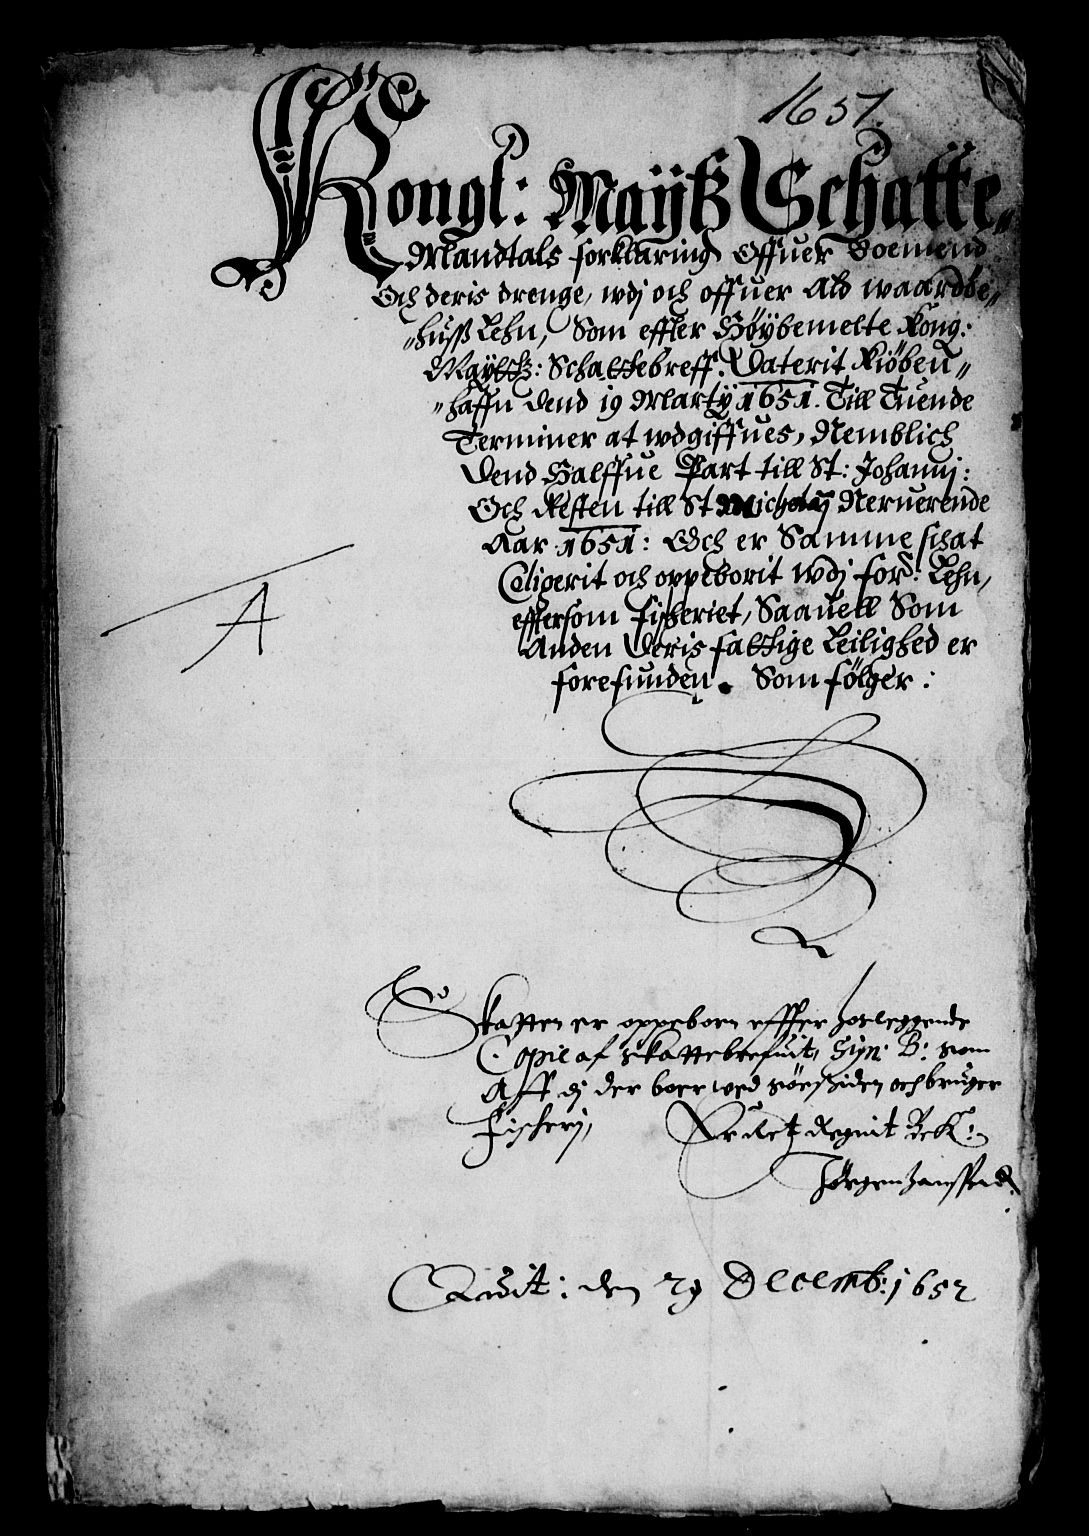 1651.
Kongl: Maÿtz Schatte
Mandtals forklaring Offuer Boemend
Och deris drenge, wdj och offuer Ald waardøe-
husß Lehn, Som effter Høÿbemelte Kong:
Maÿttz: Schattebreff. Daterit Kiöben
haffn dend 19 Martÿ 1651. Till Tuende
Terminer at wdgiffues, Nemblich
Dend Halffue Part till St: Johannj:
Och Resten till St Michelÿ Neruerende
Aar 1651: Och er Samme schat
Coligerit och oppeborit wdj ford: Lehn,
efftersom fischeriet, Saauell Som
Anden Deris fattige Leilighed er
forefunden. Som fölger:
A
Skatten er oppeboren effter hosleggende
Copie af Skattebrefuit, Sign: B: som
Aff dj der boer wed siøesiden och bruger
Fischerj,
Er det Regnit Rek:
Jørgen Janssen
Quit: den 29 Decemb: 1652